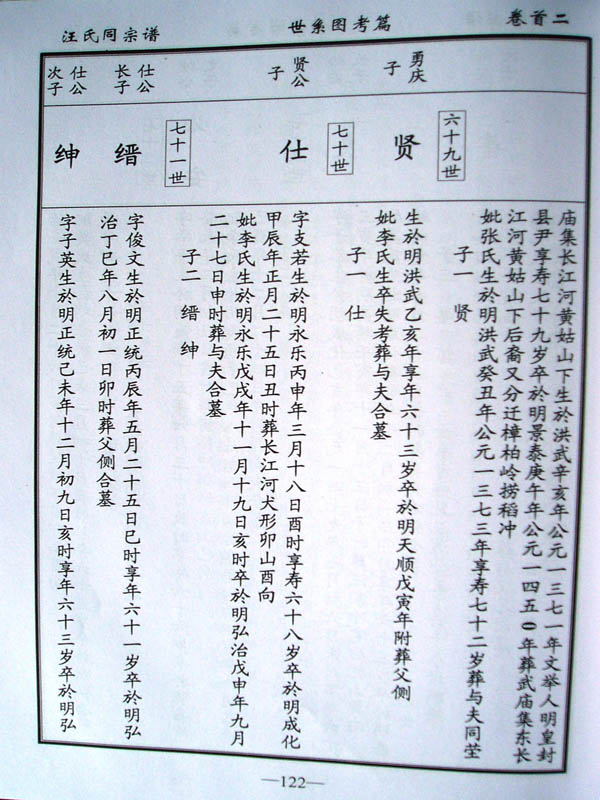 卷首二
世系图考篇
汪氏同宗谱
庙集长江河黄姑山下生於洪武辛亥年公元一三七一年文举人明皇封
县尹享寿七十九岁卒於明景泰庚午年公元一四五〇年葬武庙集东长
江河黄姑山下后裔又分迁樟柏岭捞稻冲
妣张氏生於明洪武癸丑年公元一三七三年享寿七十二岁葬与夫同茔
子一 贤
六十九世
勇庆
子
贤
生於明洪武乙亥年享年六十三岁卒於明天顺戊寅年附葬父侧
妣李氏生卒失考葬与夫合墓
子一 仕
七十世
贤公
子
仕
字支若生於明永乐丙申年三月十八日酉时享寿六十八岁卒於明成化
甲辰年正月二十五日丑时葬长江河犬形卯山酉向
妣李氏生於明永乐戊戌年十一月十九日亥时卒於明弘治戊申年九月
二十七日申时葬与夫合墓
子二 缙 绅
七十一世
仕公
长子
缙
字俊文生於明正统丙辰年五月二十五日巳时享年六十一岁卒於明弘
治丁巳年八月初一日卯时葬父侧合墓
仕公
次子
绅
字子英生於明正统己未年十二月初九日亥时享年六十三岁卒於明弘
—122—